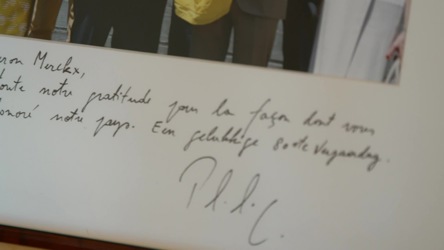 aron Merckx,
toute notre gratitude pour la façon dont vous
honoré notre pays. Een gelukkige 80ste Verjaardag.